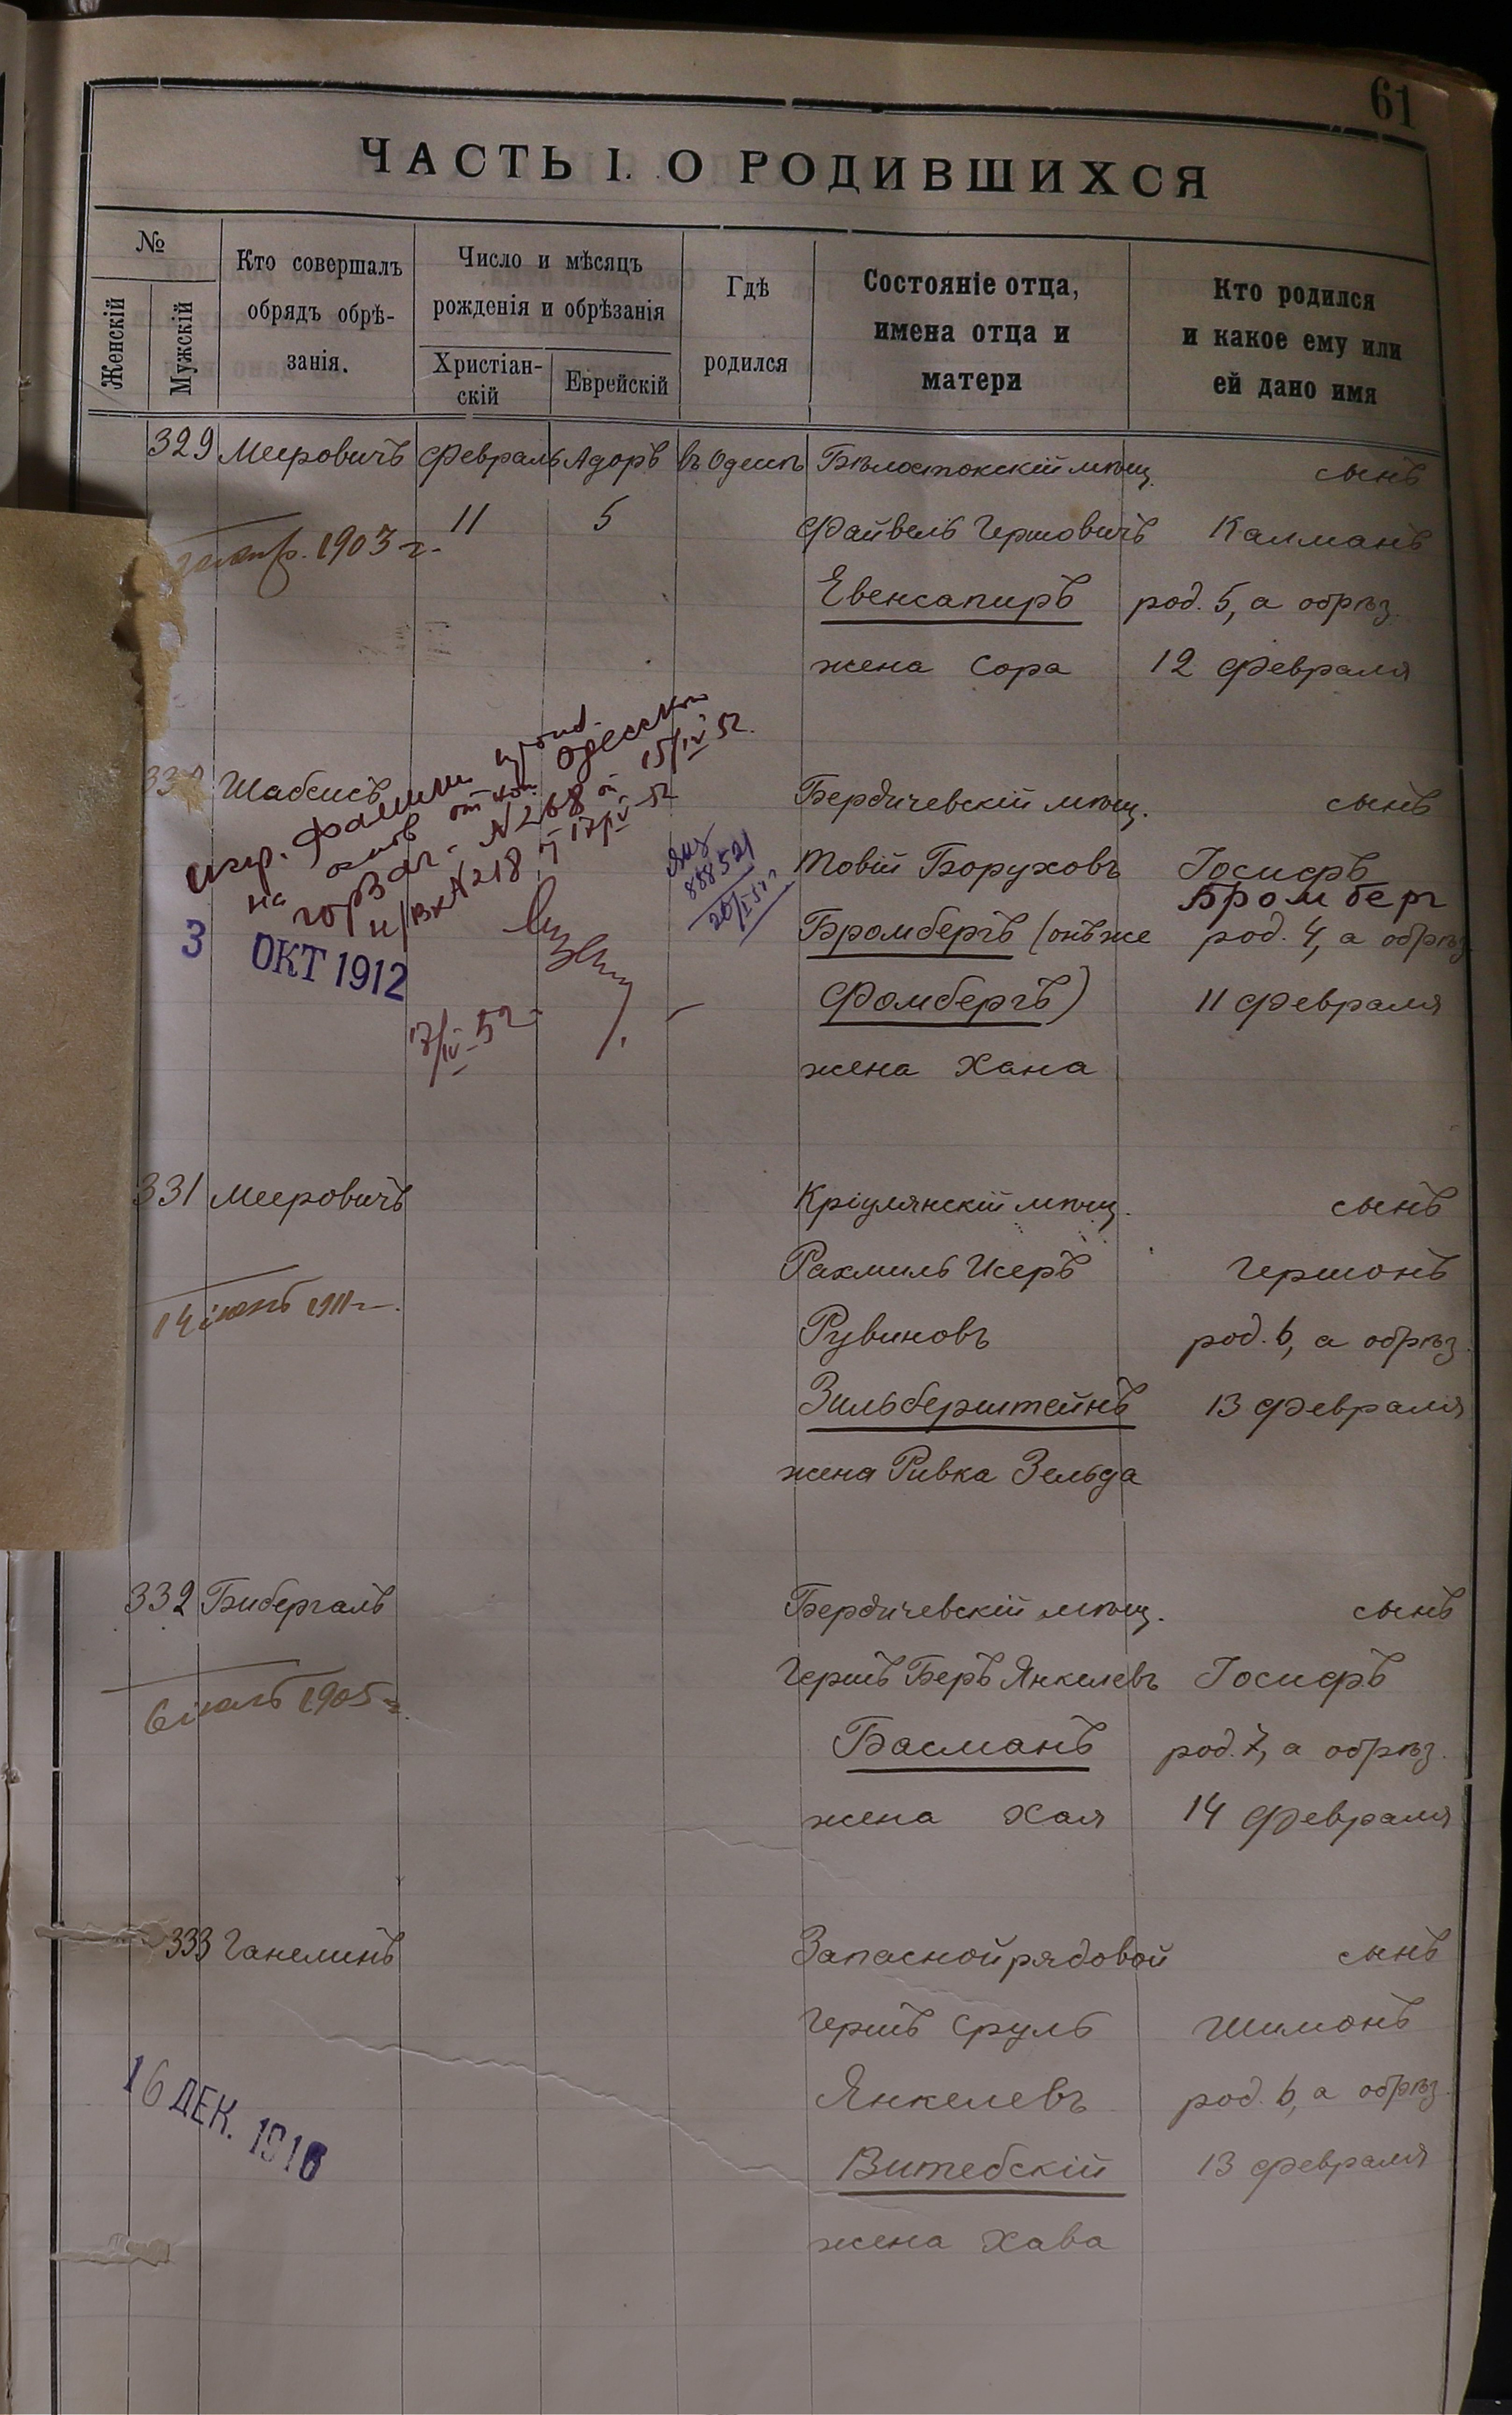 61
ЧАСТЬ I. О РОДИВШИХСЯ
№
Женскій
Мужскій
Кто совершалъ
обрядъ обрѣ-
занія.
Число и мѣсяцъ
рожденія и обрѣзанія
Христіан-
скій
Еврейскій
Гдѣ
родился
Состояніе отца,
имена отца и
матери
Кто родился
и какое ему или
ей дано имя
329 Мееровичъ Февраль Адоръ въ Одессѣ Бѣлостокскій мѣщ. сынъ
11 5 Файвель Гершовичъ Калманъ
1903 г.
Евенсапиръ род. 5, а обрѣз.
жена Сора 12 февраля
Шабсисъ Бердичевскій мѣщ. сынъ
Товій Боруховъ Іосифъ
Бромберг
Бромбергъ (онъ же род. 4, а обрѣз.
Фомбергъ) 11 февраля
жена Хана
испр. фамили
на основ
одесской
горЗАГ. N 268 от 15/IV 52.
N 218 17/IV-52
888521
3 ОКТ 1912
17/IV-52
331 Мееровичъ Кріулянскій мѣщ. сынъ
Рахмиль Исеръ Гершонъ
14 1911 г.
Рувиновъ род. 6, а обрѣз.
Зильберштейнъ 13 февраля
жена Ривка Зельда
332 Бибергаль Бердичевскій мѣщ. сынъ
Гершъ Беръ Янкелевъ Іосифъ
6 1905 г.
Басманъ род. 7, а обрѣз.
жена Хая 14 февраля
333 Ганелинъ Запасной рядовой сынъ
Гершъ Сруль Шимонъ
16 ДЕК. 1916
Янкелевъ род. 6, а обрѣз.
Витебскій 13 февраля
жена Хава